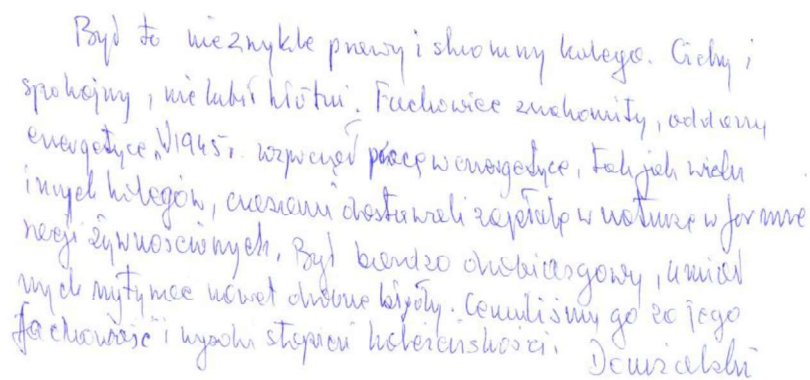 Był to niezwykle prawy i skromny kolega. Cichy i
spokojny, nie lubił kłótni. Fachowiec znakomity, oddany
energetyce. W 1945r. rozpoczął pracę w energetyce, tak jak wielu
innych kolegów, czasami dostawali zapłatę w naturze w formie
racji żywnościowych. Był bardzo drobiazgowy, umiał
nych wytymać nawet drobne błędy. Ceniliśmy go za jego
fachowość i wysoki stopień koleżeńskości. Domzalski